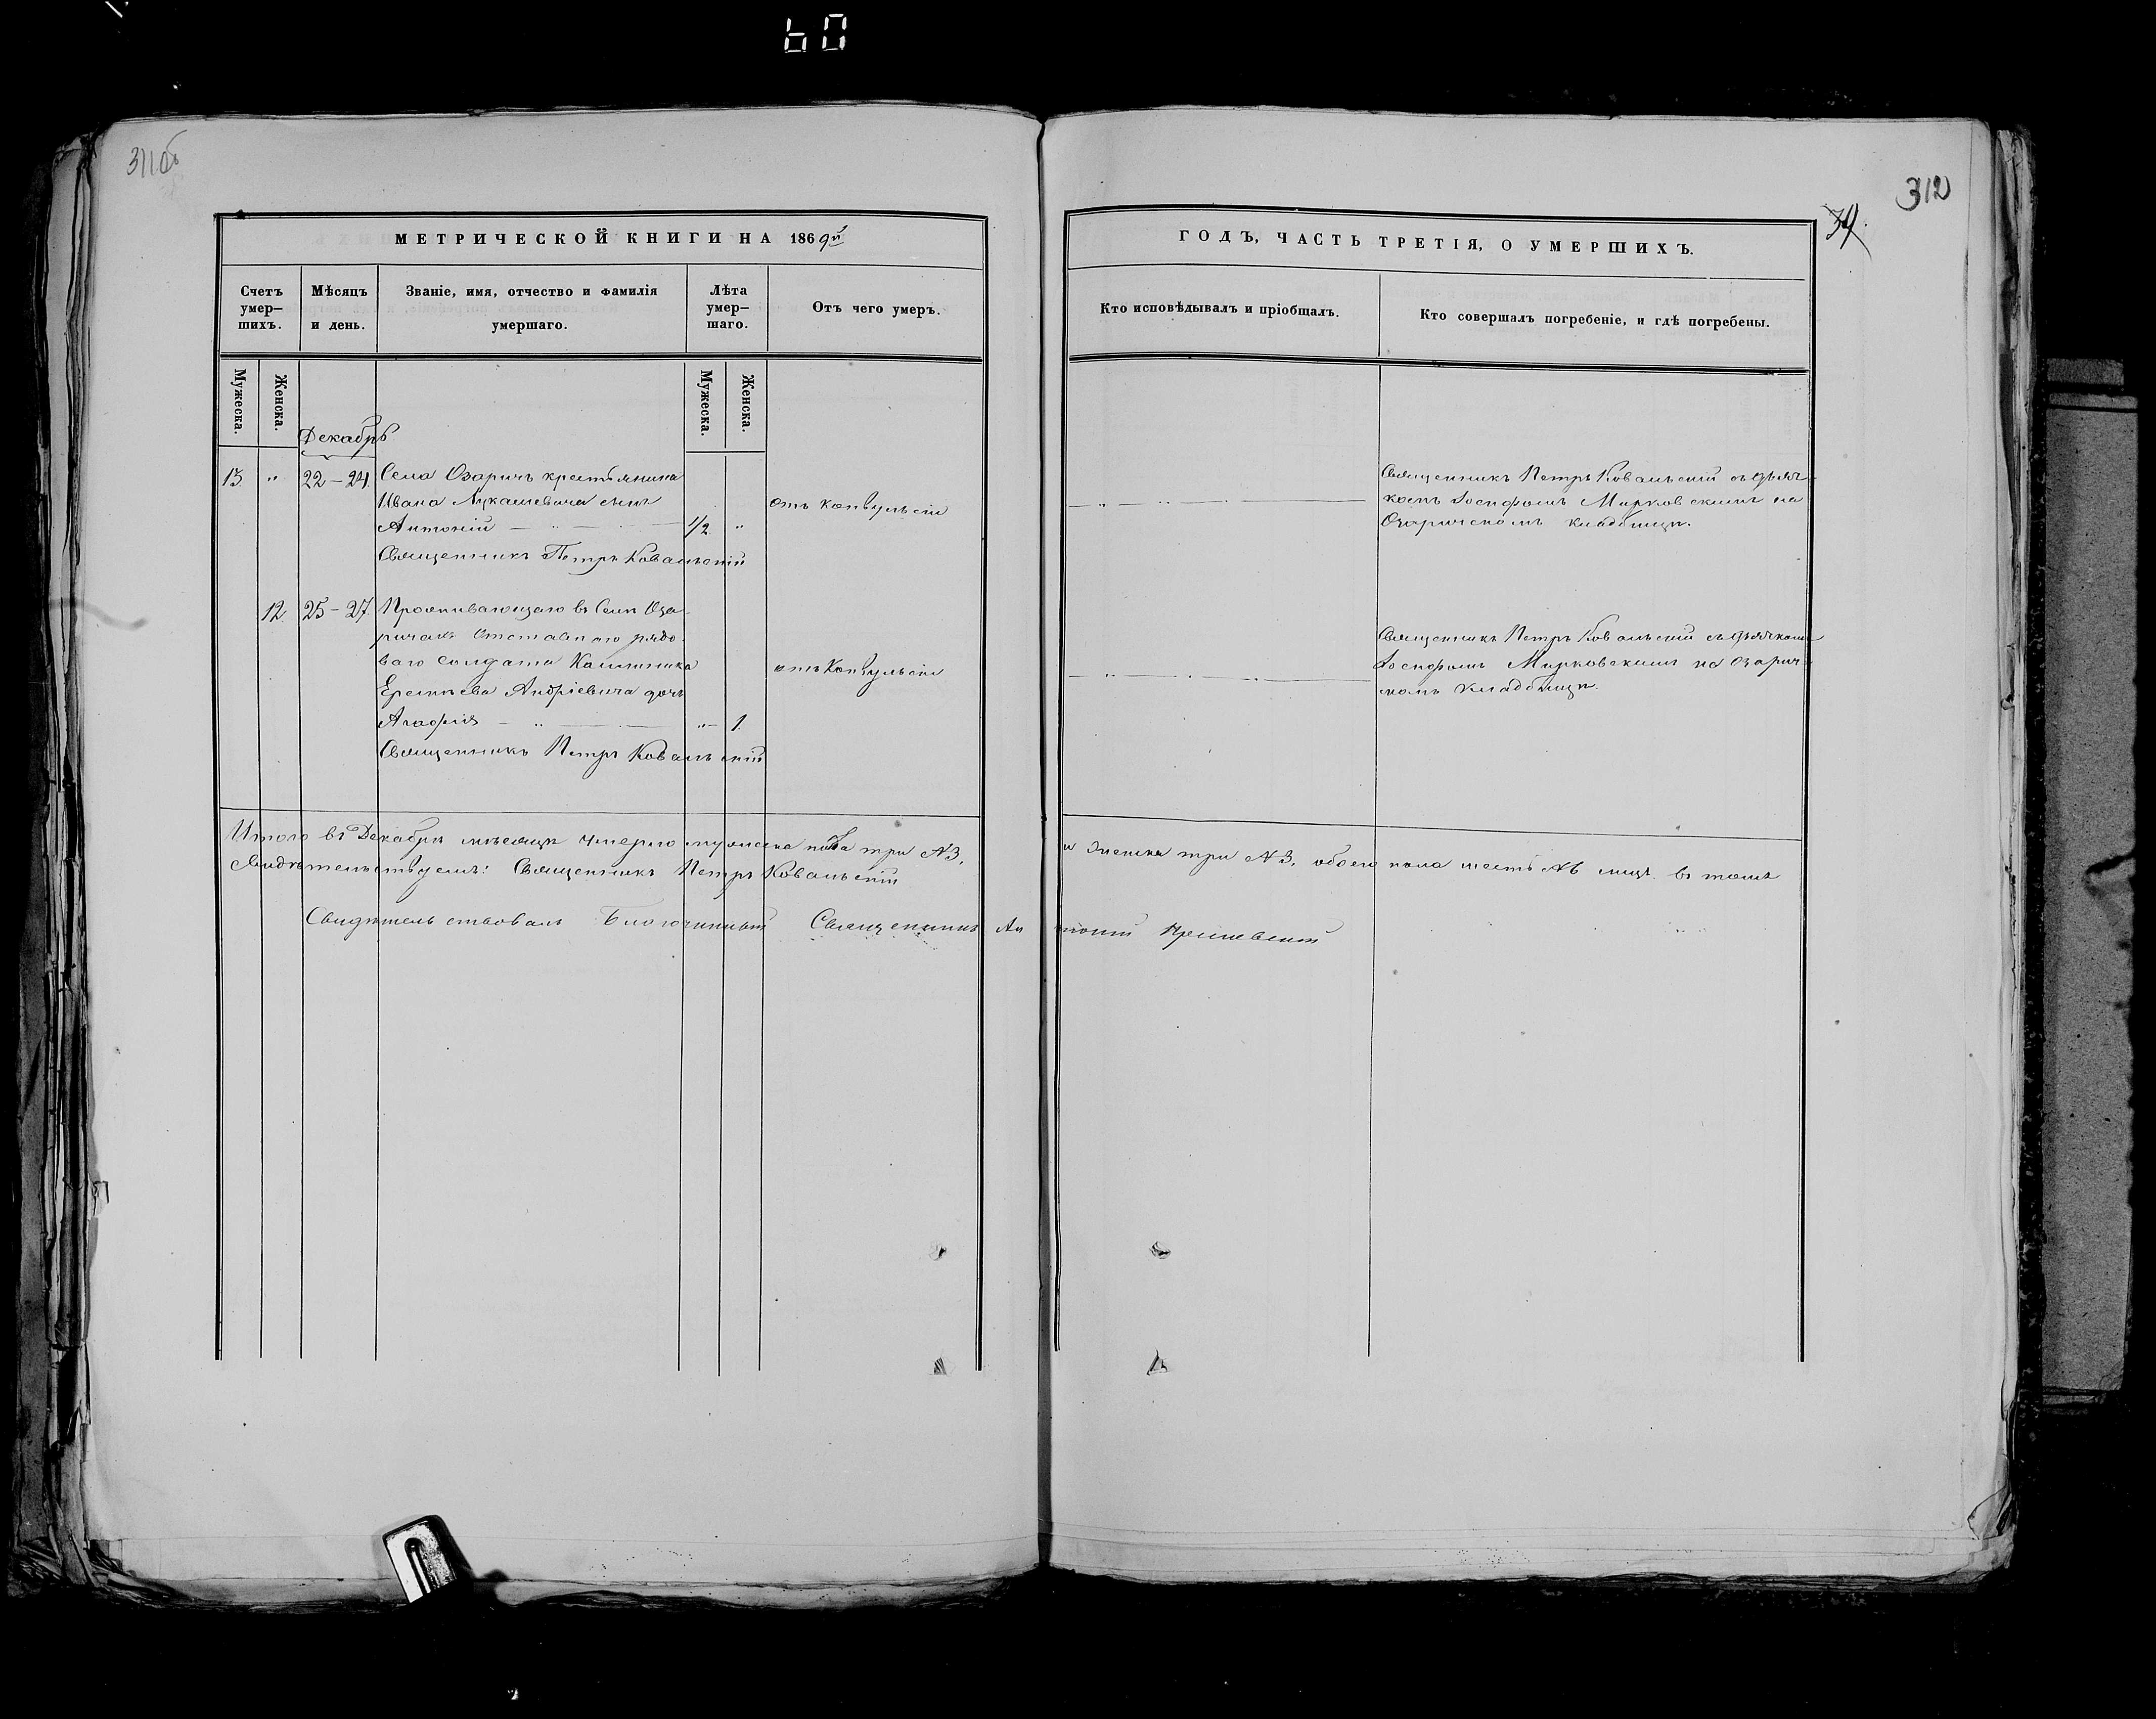 60
311об
312
34
МЕТРИЧЕСКОЙ КНИГИ НА 1869й
Счетъ умер-
шихъ.
Мѣсяцъ
и день.
Званіе, имя, отчество и фамилія
умершаго.
Лѣта
умер-
шаго.
Отъ чего умеръ.
Мужеска.
Женска.
Мужеска.
Женска.
Декабрь
13 " 22-24 Села Озаричъ крестьянина
Ивана Лукашевича сынъ
Антоній 1/2 "
отъ конвульсіи
Священникъ Петръ Ковальскій
12 25-27 Проживающаго въ Селѣ Оза-
ричахъ Отставного рядо-
ваго солдата
Андріевича дочь
Агафія " 1
отъ Конвульсіи
Священникъ Петръ Ковальскій
Итого въ Декабрѣ мѣсяцѣ умерло мужеска пола три №3,
Свидѣтельствуемъ: Священникъ Петръ Ковальскій
Свидѣтельствовалъ Благочинный Священникъ Ан
ГОДЪ, ЧАСТЬ ТРЕТІЯ, О УМЕРШИХЪ.
Кто исповѣдывалъ и пріобщалъ.
Кто совершалъ погребеніе, и гдѣ погребены.
Священникъ Петръ Ковальскій съ дьяч-
комъ Іосифомъ Мирковскимъ на
Озаричскомъ кладбищѣ.
Священникъ Петръ Ковальскій съ дьячкомъ
Іосифомъ Мирковскимъ на Озарич-
комъ кладбищѣ.
и женска три №3, обоего пола шесть №6 лицъ. въ томъ
тоній